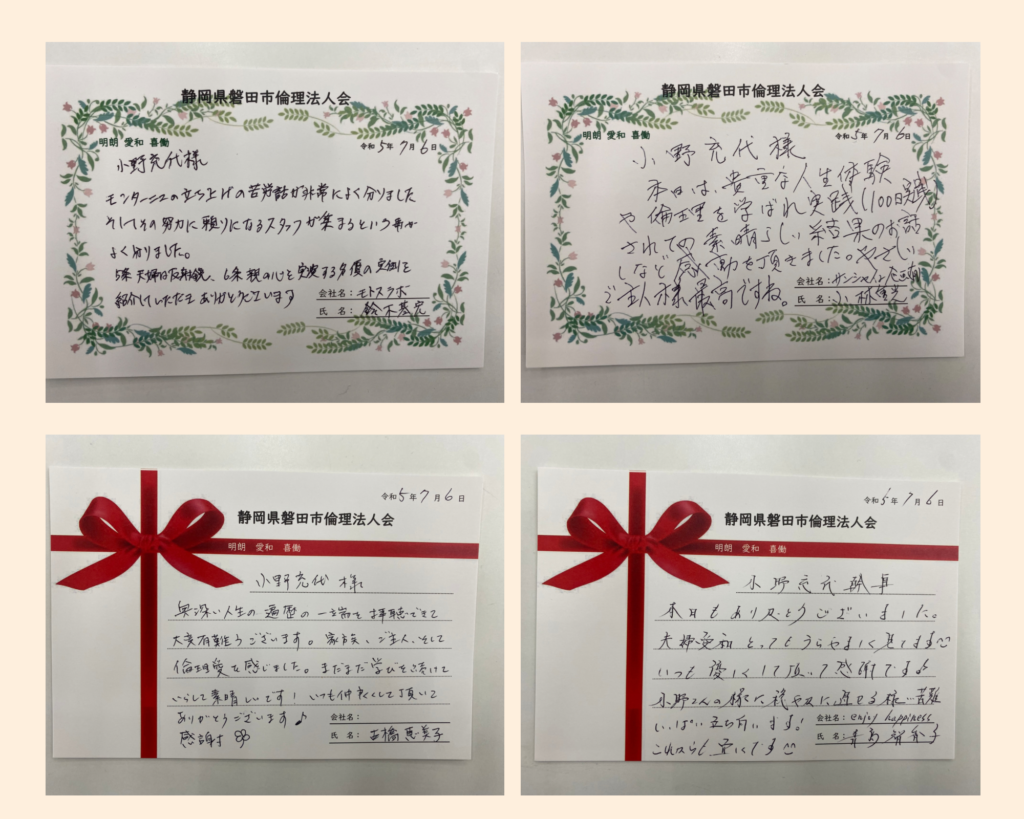 静岡県磐田市倫理法人会
明朗 愛和 喜働
令和5年7月6日
小野充代様
モンターニュの立ち上げの苦労話が非常によく分りました
そしてその努力に頼りになるスタッフが集まるという事が
よく分りました。
5条 夫婦は反射鏡、6条 親の心を実践する
の実例を
紹介いただき ありがとうございます
会社名：モトスクボ
氏 名：鈴木基宏
静岡県磐田市倫理法人会
明朗 愛和 喜働
令和5年7月6日
小野充代様
本日は、貴重な人生体験
や倫理を学ばれ実践(100日実践)
されての素晴らしい結果のお話
しなど感動を頂きました。やさしい
ご主人様最高ですね。
会社名：サンシャイン企画
氏 名：小林
令和5年7月6日
静岡県磐田市倫理法人会
明朗 愛和 喜働
小野充代 様
奥深い人生の遍歴の一端を拝聴できて
大変有難うございます。家族、ご主人、そして
倫理愛を感じました。まだまだ学びを続けて
いらして素晴しいです！いつも仲良くして頂いて
ありがとうございます♪
感謝
会社名：
氏 名：古橋恵美子
令和5年7月6日
静岡県磐田市倫理法人会
明朗 愛和 喜働
小野充代
本日もありがとうございました。
夫婦愛和 とってもうらやましく思います
いつも優しくして頂いて感謝です♪
小野さんの様に穏やかに過せる様…苦難
いっぱい立ち向います！
これからも
です
会社名：enjoy happiness
氏 名：